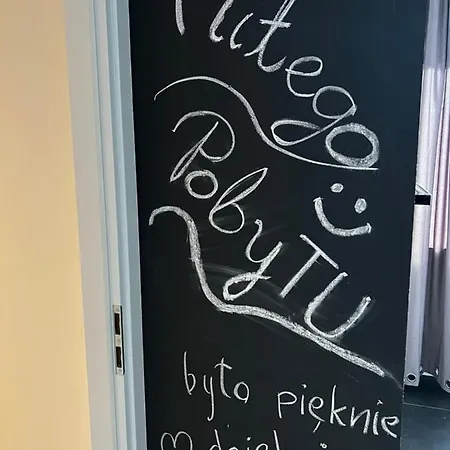 Miłego
PobyTU
było pięknie